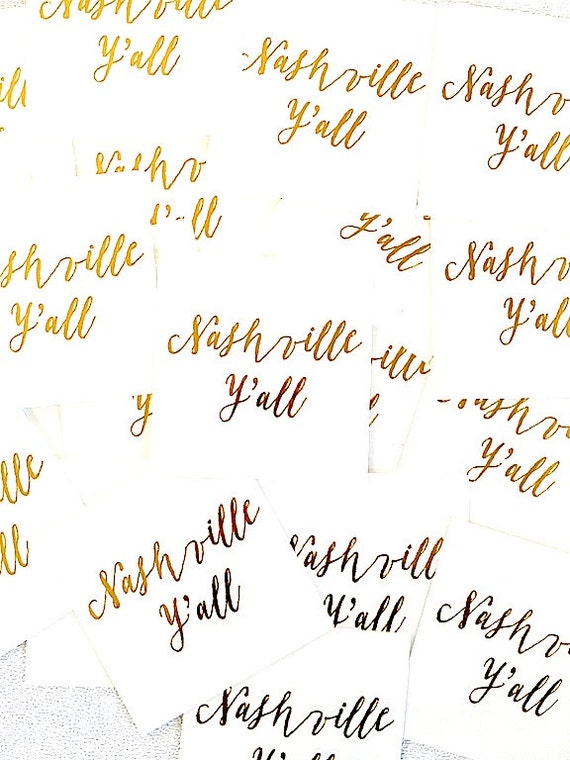 Nashville
Y'all
Nashville
Y'all
Nashville
Y'all
Nashville
Y'all
Nashville
Y'all
Nashville
Y'all
Nashville
Y'all
Nashville
Y'all
Nashville
Y'all
Nashville
Y'all
Nashville
Y'all
Nashville
Y'all